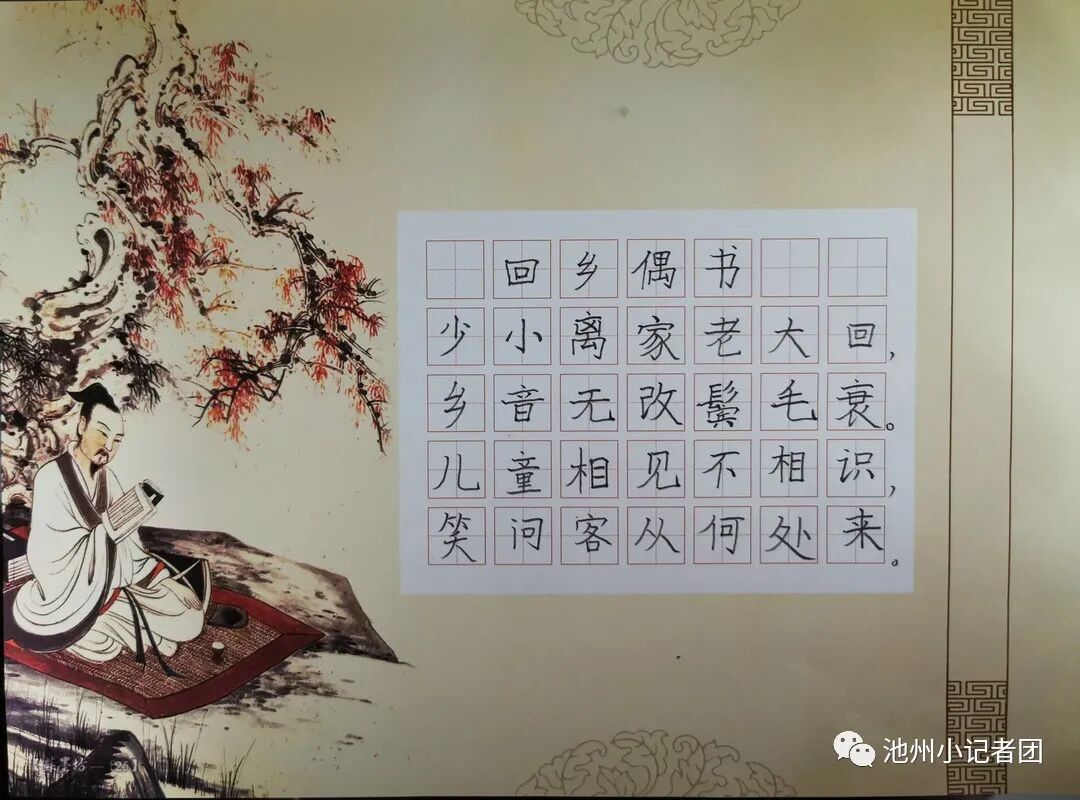 回乡偶书
少小离家老大回，
乡音无改鬓毛衰。
儿童相见不相识，
笑问客从何处来。
池州小记者团